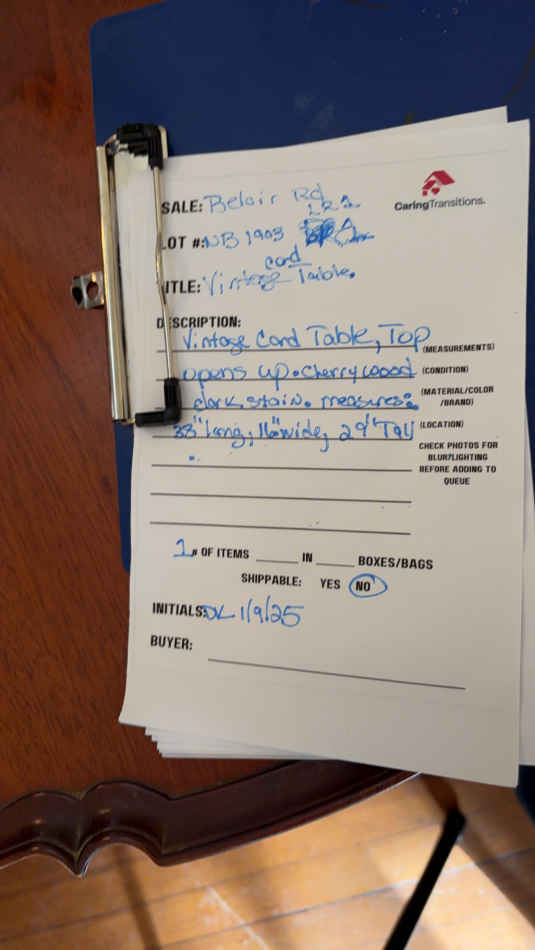 CaringTransitions.
SALE: Belair Rd
LR1
LOT #: NB 1903
card
TITLE: Vintage Table.
DESCRIPTION:
Vintage Card Table, Top
(MEASUREMENTS)
opens up. Cherry wood
(CONDITION)
dark stain. measures:
(MATERIAL/COLOR
/BRAND)
33" Long, 16" wide, 29" Tall
(LOCATION)
CHECK PHOTOS FOR
BLUR/LIGHTING
BEFORE ADDING TO
QUEUE
1 # OF ITEMS ____ IN ____ BOXES/BAGS
SHIPPABLE: YES NO
INITIALS: DL 1/9/25
BUYER: